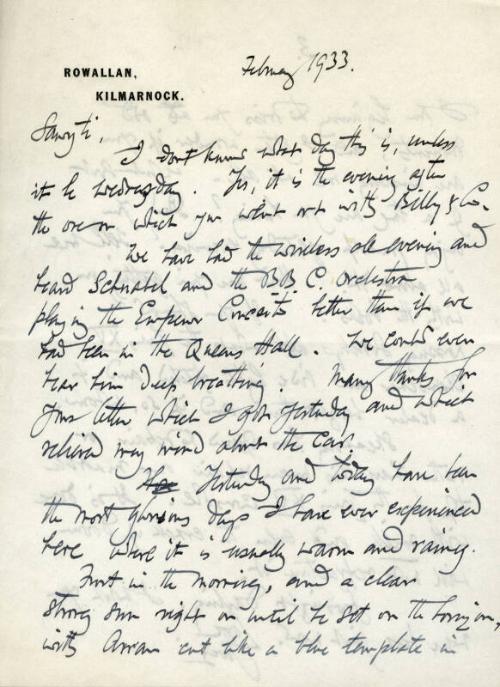 February 1933.
ROWALLAN,
KILMARNOCK.
I don't know what day this is, unless
it be Wednesday. Yes, it is the evening after
the one on which you went out with Billy & Co.
We have had the wireless all evening and
heard Schnabel and the B.B.C. Orchestra
playing the Emperor Concerto better than if we
had been in the Queens Hall. We could even
hear him deep breathing. Many thanks for
your letter which I got yesterday and which
relieved my mind about the car.
Yesterday and today have been
the most glorious days I have ever experienced
here where it is usually warm and rainy.
Frost in the morning, and a clear
strong sun right on until he set on the horizon,
with Arran cut like a blue template in